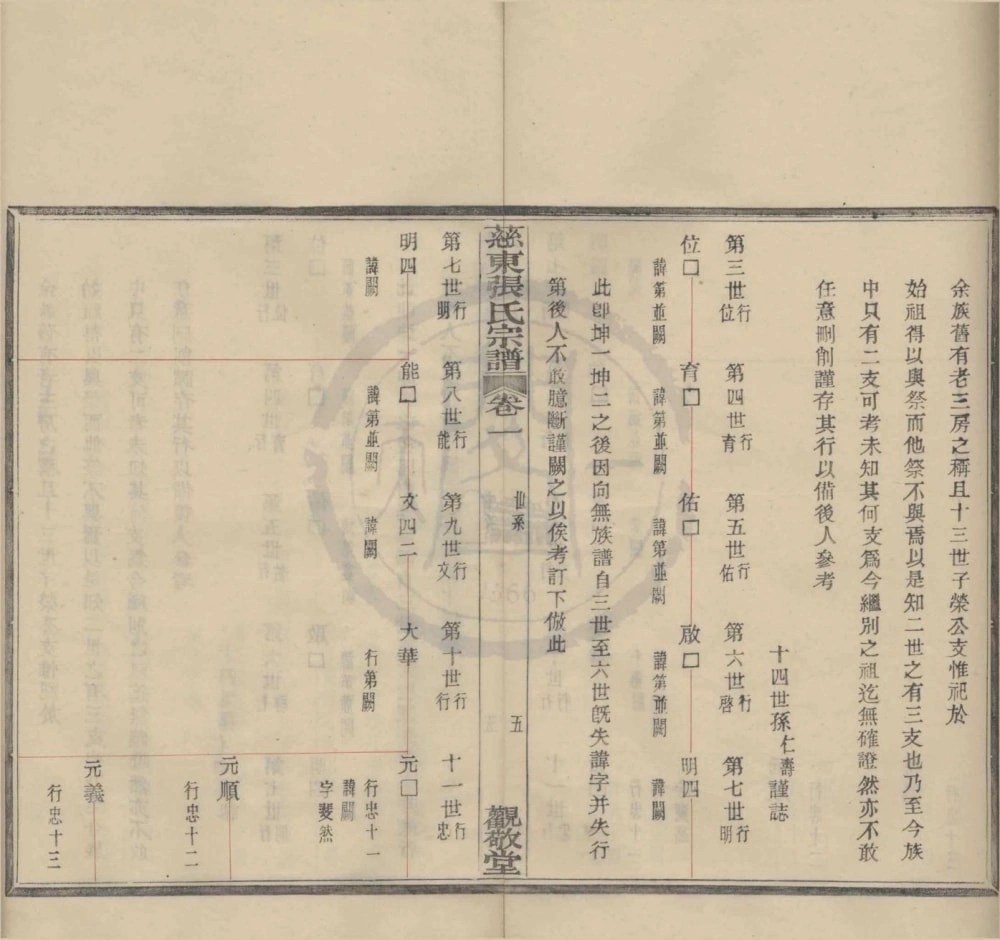 余族舊有老三房之稱且十三世子榮公支惟祀於
始祖得以與祭而他祭不與焉以是知二世之有三支也乃至今族
中只有二支可考未知其何支爲今繼別之祖迄無確證然亦不敢
任意刪削謹存其行以備後人參考
十四世孫仁壽謹誌
第三世行位 第四世行育 第五世行佑 第六世行啓 第七世行明
位□ 育□ 佑□ 啟□ 明四
諱第並闕 諱第並闕 諱第並闕 諱第並闕 諱闕
此卽坤一坤二之後因向無族譜自三世至六世旣失諱字并失行
第後人不敢臆斷謹闕之以俟考訂下倣此
慈東張氏宗譜 卷一 世系 五 觀敬堂
第七世行明 第八世行能 第九世行文 第十世行行 十一世行忠
明四 能□ 文四二 大華 元□
諱闕 諱第並闕 諱闕 行第闕 行忠十一
諱闕
字斐然
元順
行忠十二
元義
行忠十三